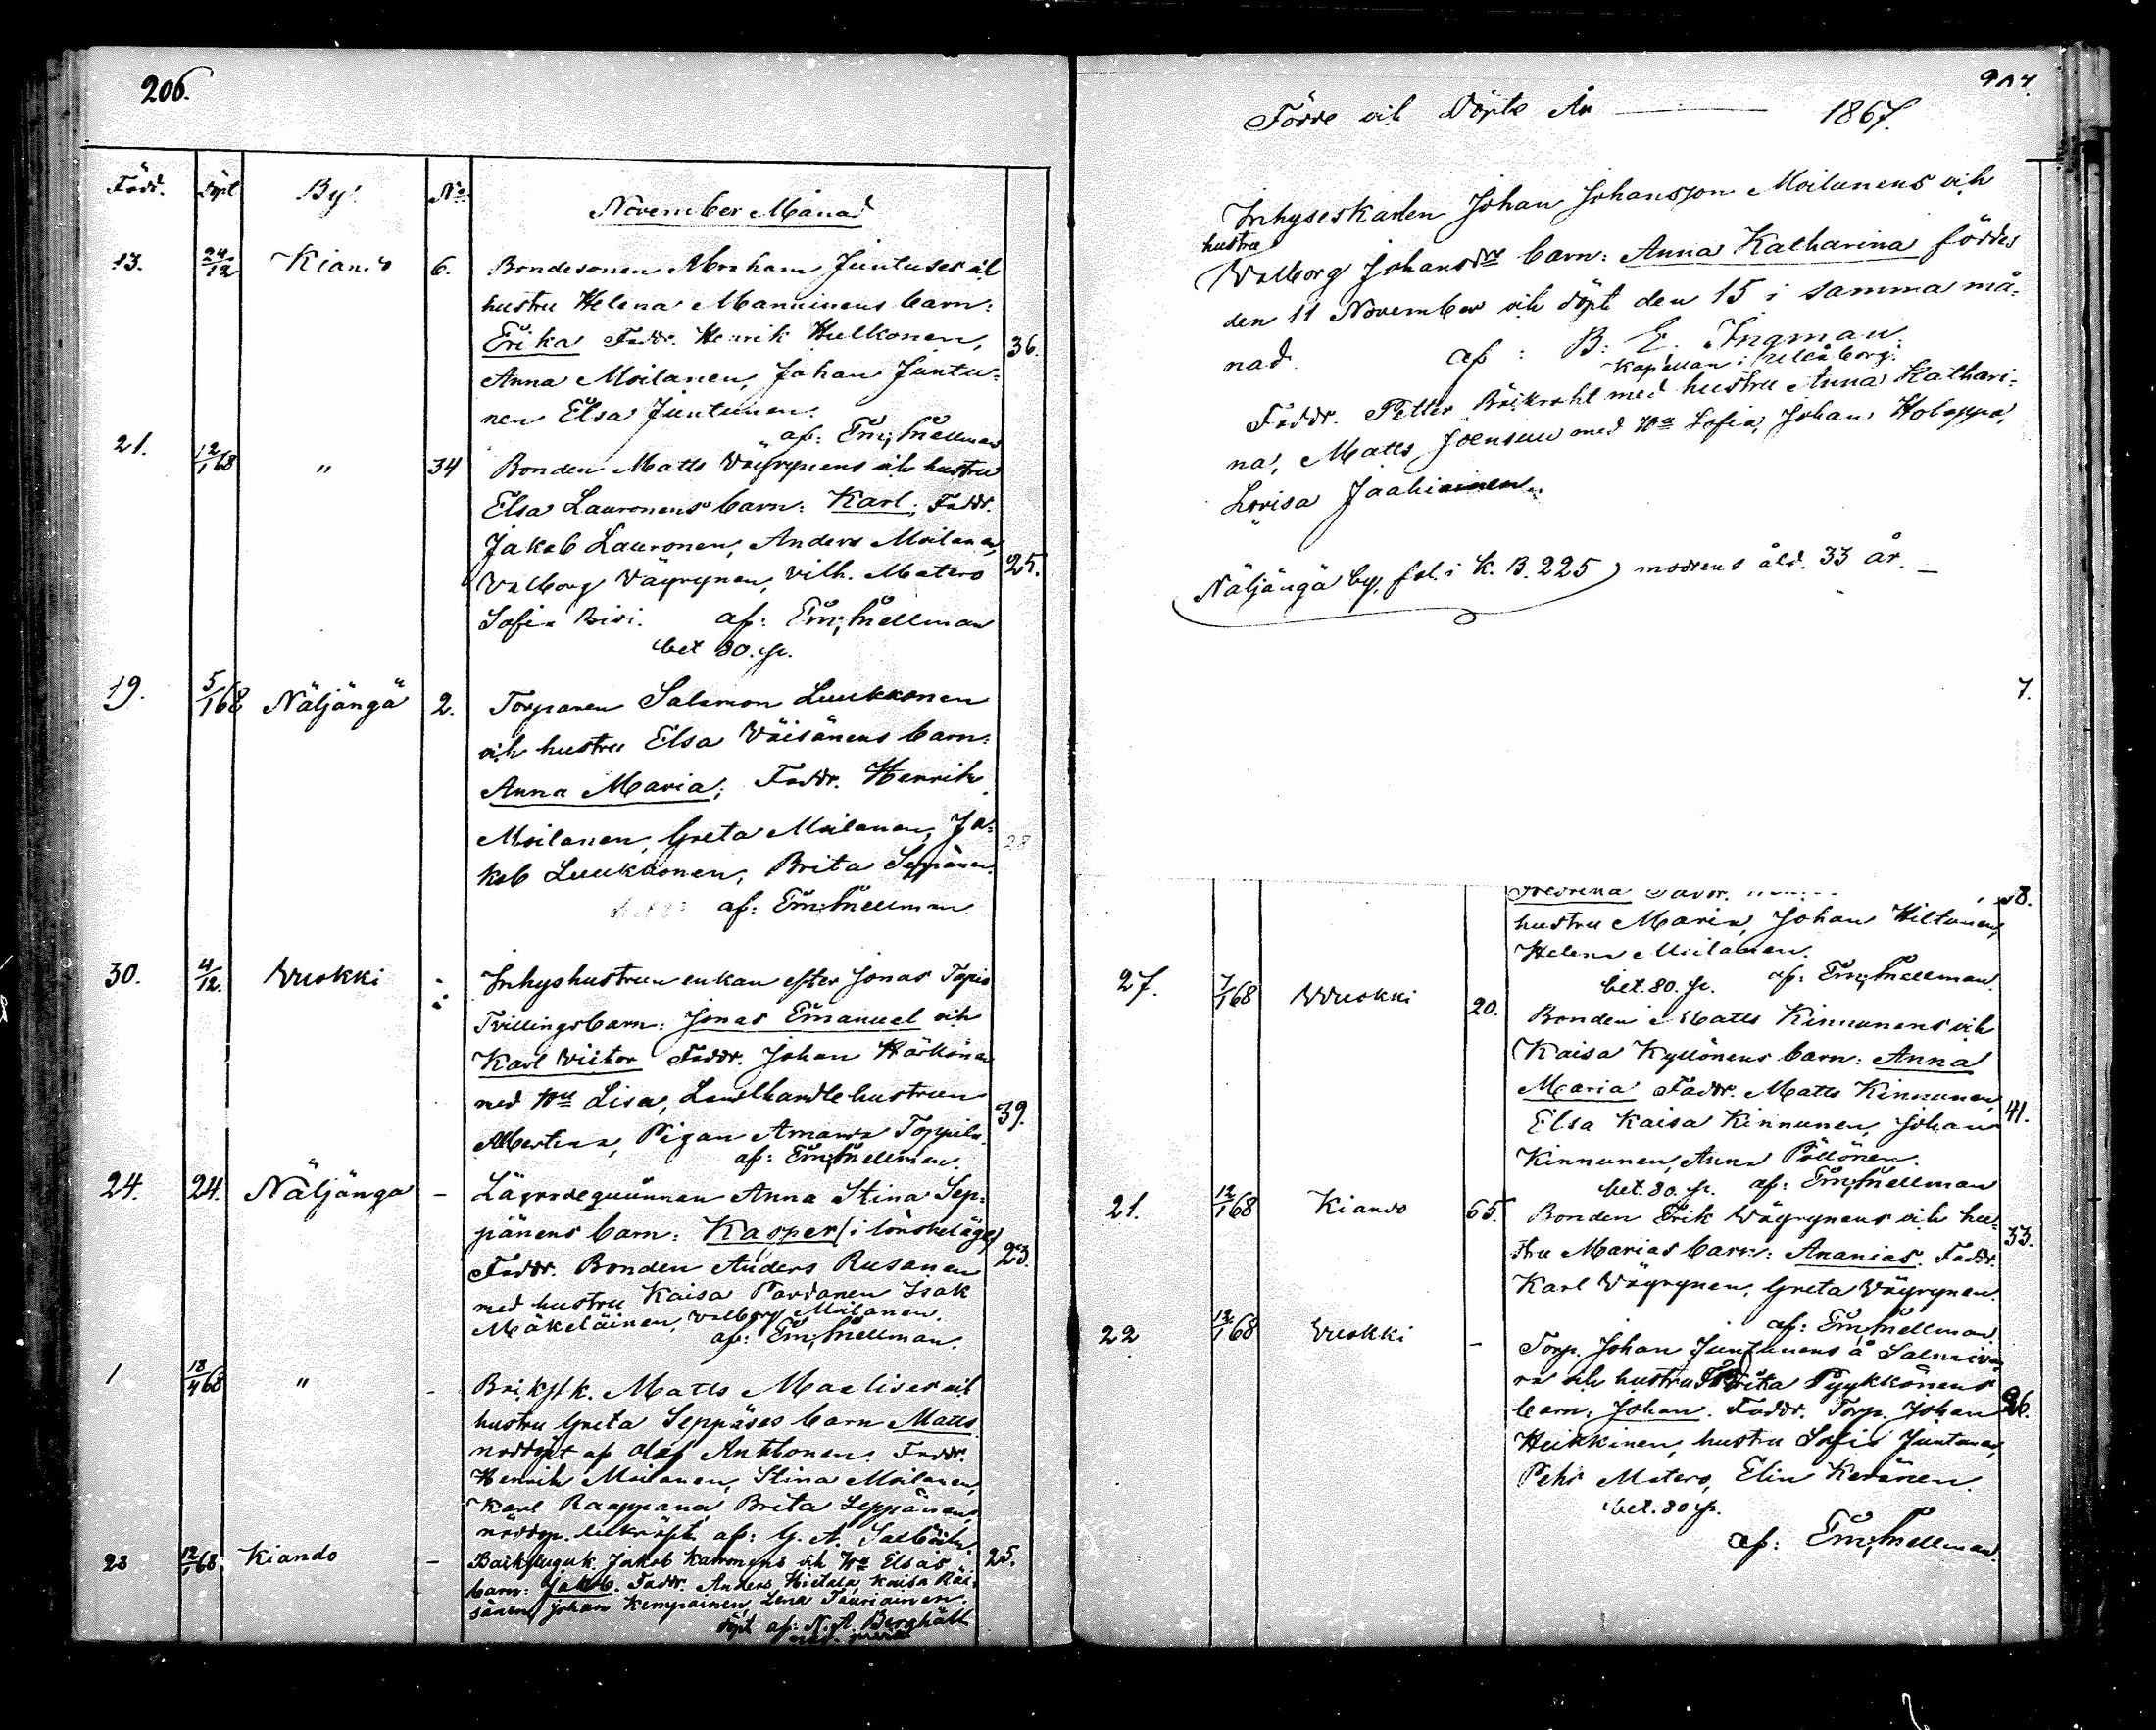 206.
Född. Döpt By. No. November Månad
13. 24/12 Kiando 6. Bondesonen Abraham Juntuses och
hustru Helena Manninens barn:
Erika Faddr. Henrik Hulkonen, 36.
Anna Moilanen, Johan Juntu-
nen Elsa Juntunen.
af: Em: Snellman
21. 12/1 68 " 34 Bonden Matts Väyrynens och hustru
Elsa Lauronens barn: Karl; Faddr.
Jakob Lauronen, Anders Moilanen,
Valborg Väyrynen, Vilh. Matero 25.
Sofia Bisi. af: Em: Snellman
bet 80. p.
19. 5/1 68 Näljängä 2. Torparen Salomon Luukkonen
och hustru Elsa Väisänens barn:
Anna Maria; Faddr. Henrik
Moilanen, Greta Moilanen, Ja-
kob Luukkonen, Brita Seppänen. 28
af: Em: Snellman.
30. 4/12. Vuokki Inhyshustrun enkan efter Jonas Tapio
Tvillingsbarn: Jonas Emanuel och
Karl Victor Faddr. Johan Härkönen
med Hu Lisa, Landthandlehustrun 39.
Albertina, Pigan Amanda Toppila.
af: Em: Snellman.
24. 24. Näljängä – Lägradequinnan Anna Stina Sep-
pänens barn: Kasper (i lönskeläge)
Faddr. Bonden Anders Rusanen 23.
med hustru Kaisa Pardanen Isak
Mäkeläinen, Valborg Moilanen.
af: Em: Snellman.
1 18/4 68 " – Matts
hustru Greta Seppäses barn Matts
nöddöpt af Olof Anttonen. Faddr.
Henrik Moilanen, Stina Moilanen,
Karl Raappana, Brita Seppänen,
af: G. A.
23 12/1 68 Kiando – Jakob och Hu Elsas 25.
barn: Jakob. Faddr. Anders Hietala, Kaisa Räi-
sänen, Johan Kemppainen, Lena Tauriainen.
döpt af: N. A. Berghäll
Födde och Döpte År — 1867.
Inhyseskarlen Johan Johansson Moilanens och
hustru
Valborg Johansdr barn: Anna Katharina föddes
den 11 November och döpt den 15 i samma må-
nad. af: B: E. Ingman.
Kapellan i Uleåborg.
Faddr. Petter med hustru Anna Kathari-
na, Matts Joensuu med Hu Sofia, Johan Holappa,
Lovisa
Näljängä by, fol. i K. B. 225) modrens åld. 33 år. –
7.
Fredrika Faddr. 38.
hustru Maria, Johan Hiltunen,
Helena Moilanen.
bet. 80. p. af: Em: Snellman.
27. 7/1 68 Vuokki 20. Bonden Matts Kinnunens och
Kaisa Kyllönens barn: Anna
Maria Faddr. Matts Kinnunen, 41.
Elsa Kaisa Kinnunen, Johan
Kinnunen, Anna Pöllönen.
bet. 80. p. af: Em: Snellman
21. 12/1 68 Kiando 65. Bonden Erik Väyrynens och hu-
stru Marias barn: Ananias. Faddr. 33.
Karl Väyrynen, Greta Väyrynen.
af: Em: Snellman.
22 12/1 68 Vuokki – Torp. Johan Juntunens å Salmiva-
ra och hustru Brita Pyykkönens
barn: Johan. Faddr. Torp. Johan 26.
Heikkinen, hustru Sofia Juntunen,
Pehr Matero, Elin Keränen.
bet. 80 p.
af: Em: Snellman.